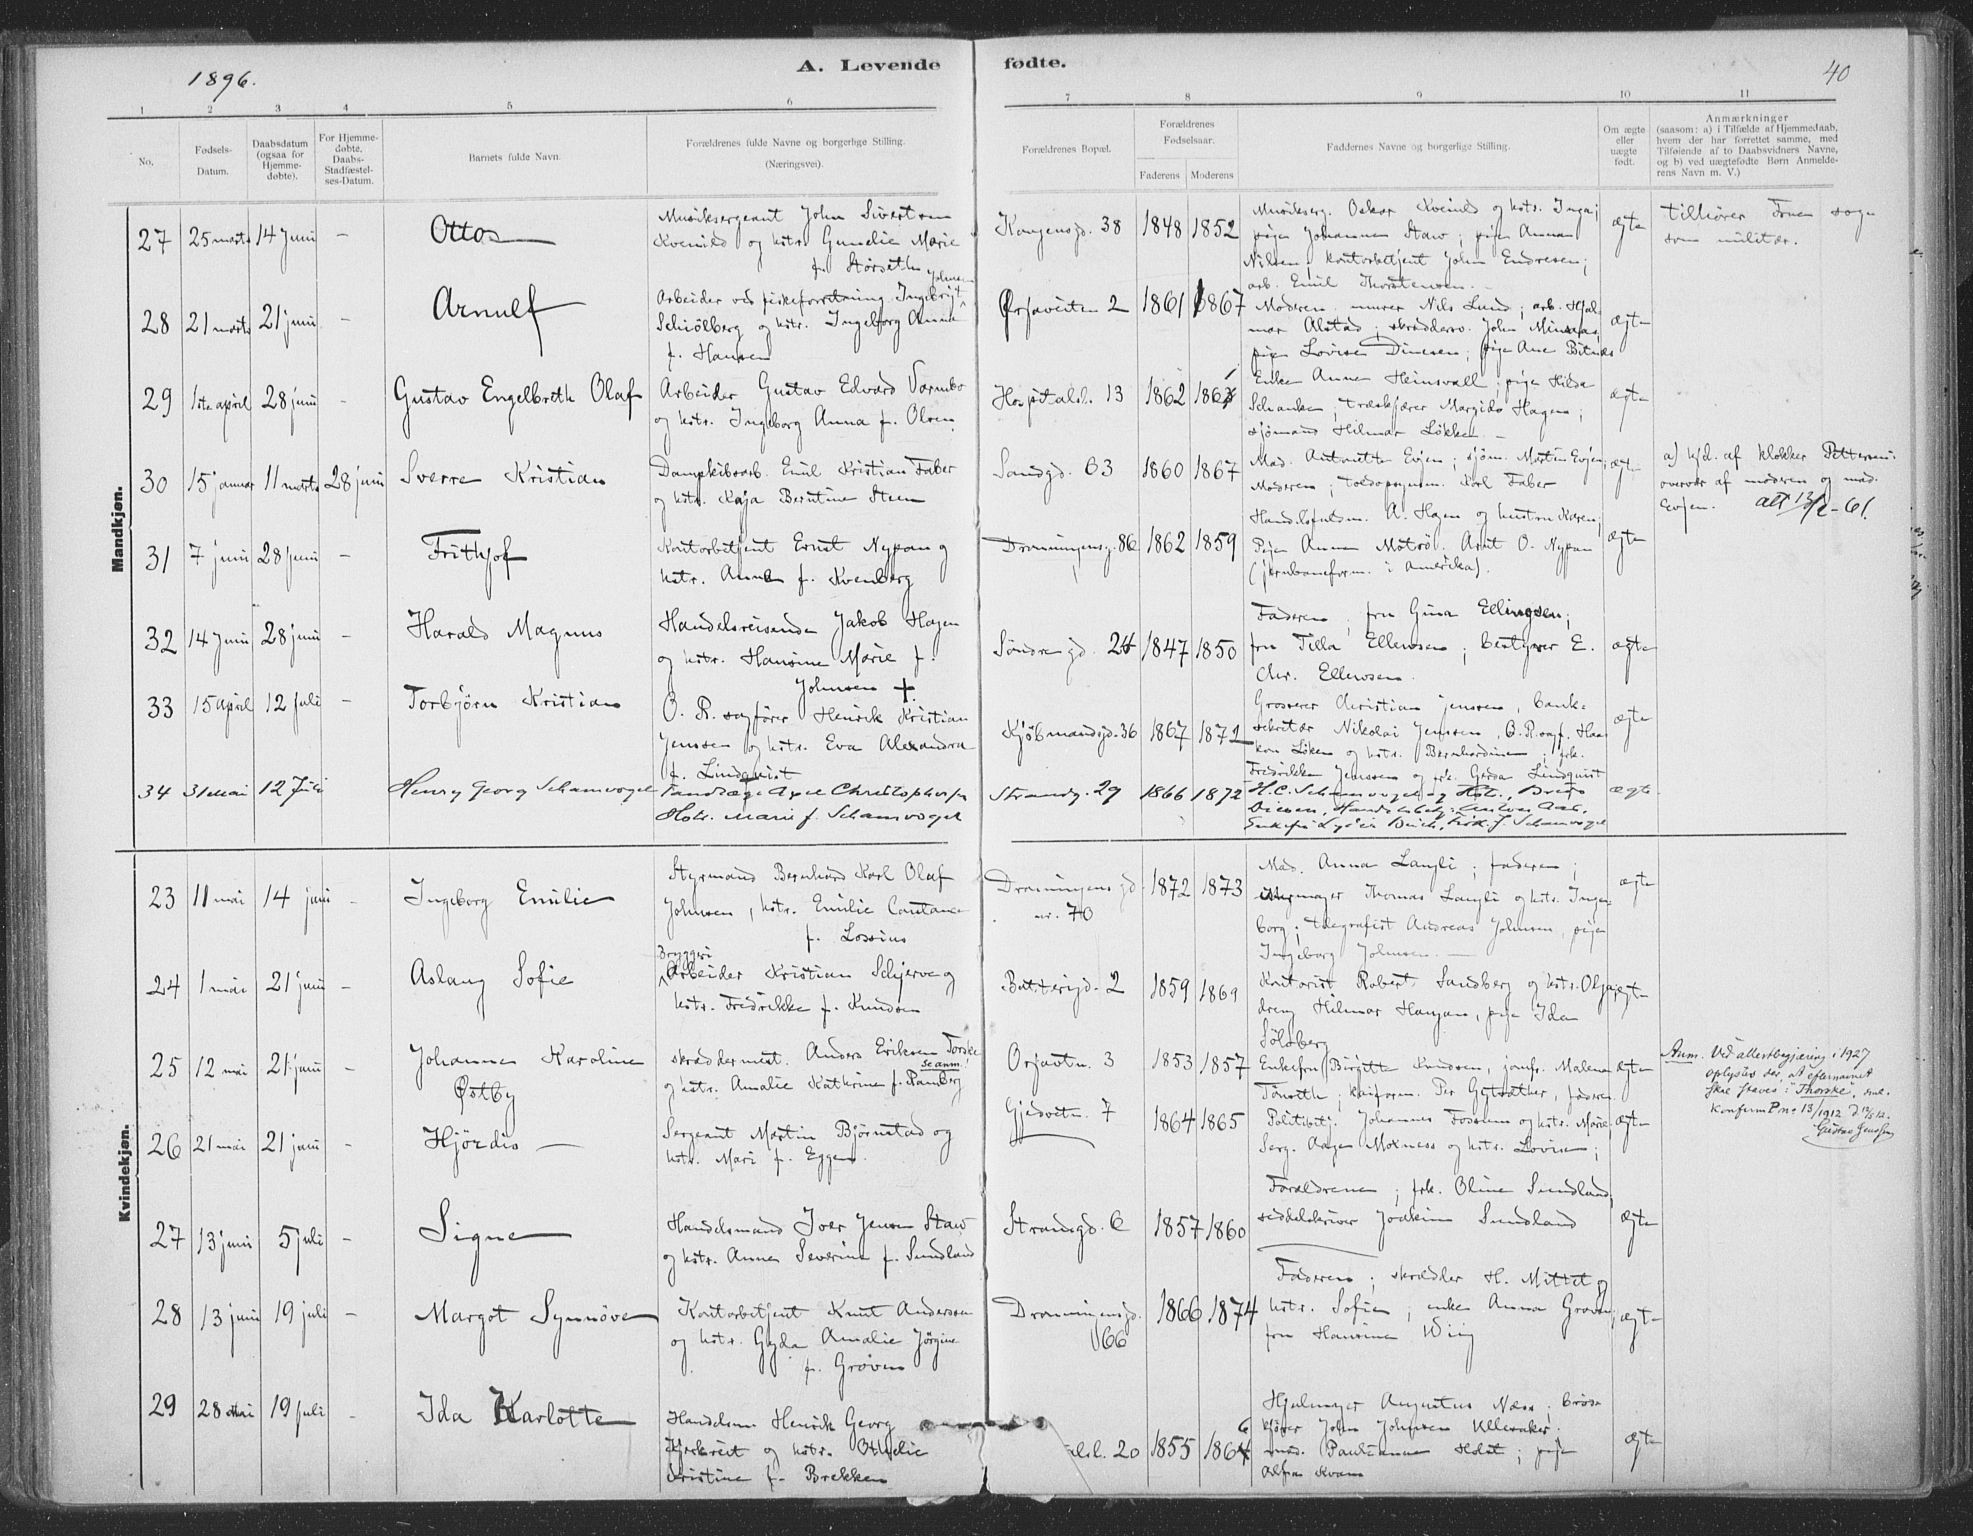 1896.
A. Levende fødte.
40
1 2 3 4 5 6 7 8 9 10 11
No.
Fødsels-
Datum.
Daabsdatum
(ogsaa for
Hjemme-
døbte).
For Hjemme-
døbte,
Daabs-
Stadfæstel-
ses-Datum.
Barnets fulde Navn.
Forældrenes fulde Navne og borgerlige Stilling.
(Næringsvei).
Forældrenes Bopæl.
Forældrenes
Fødselsaar.
Faderens Moderens
Faddernes Navne og borgerlige Stilling.
Om ægte
eller
uægte
født.
Anmærkninger
(saasom: a) i Tilfælde af Hjemmedaab,
hvem der har forrettet samme, med
Tilføiende af to Daabsvidners Navne,
og b) ved uægtefødte Børn Anmelde-
rens Navn m. V.)
Mandkjøn.
27 25 marts 14 juni - Otto
Musiksergeant John Sivertsen
Kveinild og hstr. Gunelie Marie
f. Størseth
Kongensgd. 38 1848 1852
Musikserg. Oskar Kveinild og hstr. Inga;
pige Johanna Staw; pige Anna
Nilsen, kontorbetjent John Endresen;
arb. Emil Thorstensen.
ægte
tilhører sogn
som militær.
28 21 marts 21 juni - Arnulf
Arbeider ved fiskeforretning Ingebrigt
Schiölberg og hstr. Ingeborg Anna
f. Hansen
Ørjaveiten 2 1861 1867
Moderen, murer Nils Lund; arb. Hjal-
mar Alstad; skræddersv. John
pige Lovise Dinesen; pige Ane
ægte
29 1ste april 28 juni - Gustav Engelbreth Olaf
Arbeider Gustav Edvard Varmbo
og hstr. Ingeborg Anna f. Olsen
Hospitalsl. 13 1862
Enke Anna Heinsvall; pige Hilda
Schanke; træskjærer Margido Hagen;
sjömand Hilmar Løkken.
ægte
30 15 januar 11 marts 28 juni Sverre Kristian
Dampskibsarb. Emil Kristian Faber
og hstr. Kaja Berntine Steen
Sandgd. 63 1860 1867
Mad. Antonette Evjen; sjöm. Morten Evjen;
Moderen; Karl Faber
ægte
a) hjd. af klokker Pettersen
overvær af moderen og mad.
Evjen. att 13/2-61.
31 7 juni 28 juni - Frithjof
Kontorbetjent Ernst Nypan og
hstr. Anna f. Kvenberg
Dronningensg. 86 1862 1859
Handelsfuldm. A. Hagen og hustru Karen;
Pige Anna Möträ. Arnt O. Nypan
(jernbaneform. i Amerika).
ægte
32 14 juni 28 juni - Harald Magnus
Handelsreisende Jakob Hagen
og hstr. Hansine Marie f.
Johnsen +
Söndre gd. 24 1847 1850
Faderen, fru Gina Ellingsen;
fru Tilla Ellewsen; bestyrer E.
Chr. Ellewsen.
ægte
33 15 april 12 juli - Torbjörn Kristian
O. R. sagfører Henrik Kristian
Jenssen og hstr. Eva Alexandra
f. Lindquist
Kjöbmandsgd. 36 1867 1872
Grosserer Christian Jenssen, bank-
sekretær Nikolai Jenssen, O.R.saf. Haa-
kon Löken og hstr. Bernhardine; frk.
Fredrikke Jenssen og frk. Gerda Lindquist
ægte
34 31 mai 12 Juli Henry Georg Schamvogel
Tandlæge Axel Christophersen
Hstr. Marie f. Schamvogel
Strandg. 29 1866 1872
H.C. Schamvogel og Hstr.,
Enkefru Lydia Buch, Frk. J. Schamvogel
ægte
Kvindekjøn.
23 11 mai 14 juni - Ingeborg Emilie
Styrmand Bernhard Karl Olaf
Johnsen, hstr. Emilie Constance
f. Lossius
Dronningensgd.
nr. 70
1872 1873
Mad. Anna Langli; faderen;
Thomas Langli og hstr. Inge-
borg; telegrafist Andreas Johnsen, pige
Ingeborg Johnsen.
ægte
24 1 mai 21 juni - Aslaug Sofie
Bryggeri
Arbeider Kristian Schjerve og
hstr. Fredrikke f. Knudsen
Batterigd. 2 1859 1869
Kontorist Robert Sandberg og hstr. Olga,
dreng Hilmar Haugan, pige Ida
Sölsberg
ægte
25 12 mai 21 juni Johanna Karoline
Østby
skræddermest. Anders Eriksen Torske
se anm.
og hstr. Amalie Kathrine f. Ramberg
Örjavtn. 3 1853 1857
Enkefru Birgitte Knudsen, jomfr. Malena
Tönseth; Per Gytvather, faderen
ægte
Anm. Ved attestbegjæring i 1927
oplystes der, at efternavnet
skal staves: "Thorske", sml.
konferm P no 13/1912 D 12/5 12.
Gustav Jenssen
26 21 mai 21 juni - Hjördis
Sergeant Martin Björnstad og
hstr. Mari f. Eggen.
Gjedvetn. 7 1864 1865
Politibtj. Johannes Fossem og hstr. Marie;
Serg. Aage Moxness og hstr. Lovise;
ægte
27 13 juni 5 juli - Signe
Handelsmand Iver Jensen Staw
og hstr. Anna Severine f. Sundland
Strandgd. 6 1857 1860
Forældrene; frk. Oline Sundland,
seddelskriver Joakim Sundland
ægte
28 13 juni 19 juli - Margot Synnöve
Kontorbetjent Knut Andersen
og hstr. Gyda Amalie Jörgine
f. Gröven
Dronningensgd.
66
1866 1874
Faderen; skrædder H. Mittet og
hstr. Sofie; enke Anna Gröven;
fru Hansine Wiig
ægte
29 28 mai 19 juli - Ida Karlotte
Handelsm Henrik Georg
Kjerkreit og hstr. Othelie
Kristine f. Brekken
20 1855
Hjulmager Augustus Næss;
kjører John Johnsen Ullensaker;
mad. Paulianna Holst; pige
Alfa Kvam
ægte